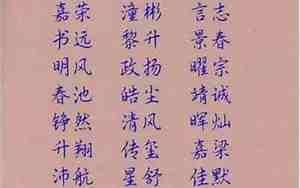 嘉荣 潼彬 言志
书远 黎升 景春
明风 政扬 曜宗
春池 皓尘 靖诚
铮然 清风 晖灿
升翔 传玺 嘉梁
沛航 星舒 佳默